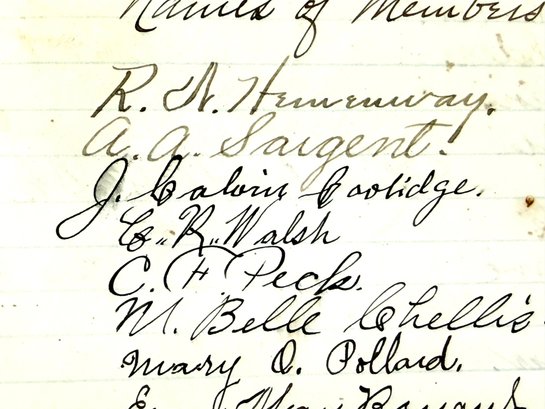 Names of Members
R. N. Hemenway.
A. A. Sargent.
J. Calvin Coolidge.
C. R. Walsh
C. H. Peck.
M. Belle Chellis
Mary O. Pollard.